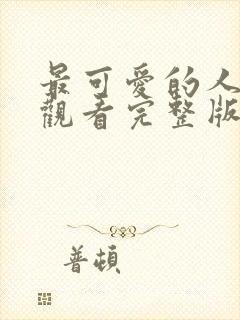 最可愛的人
觀看完整版
普頓